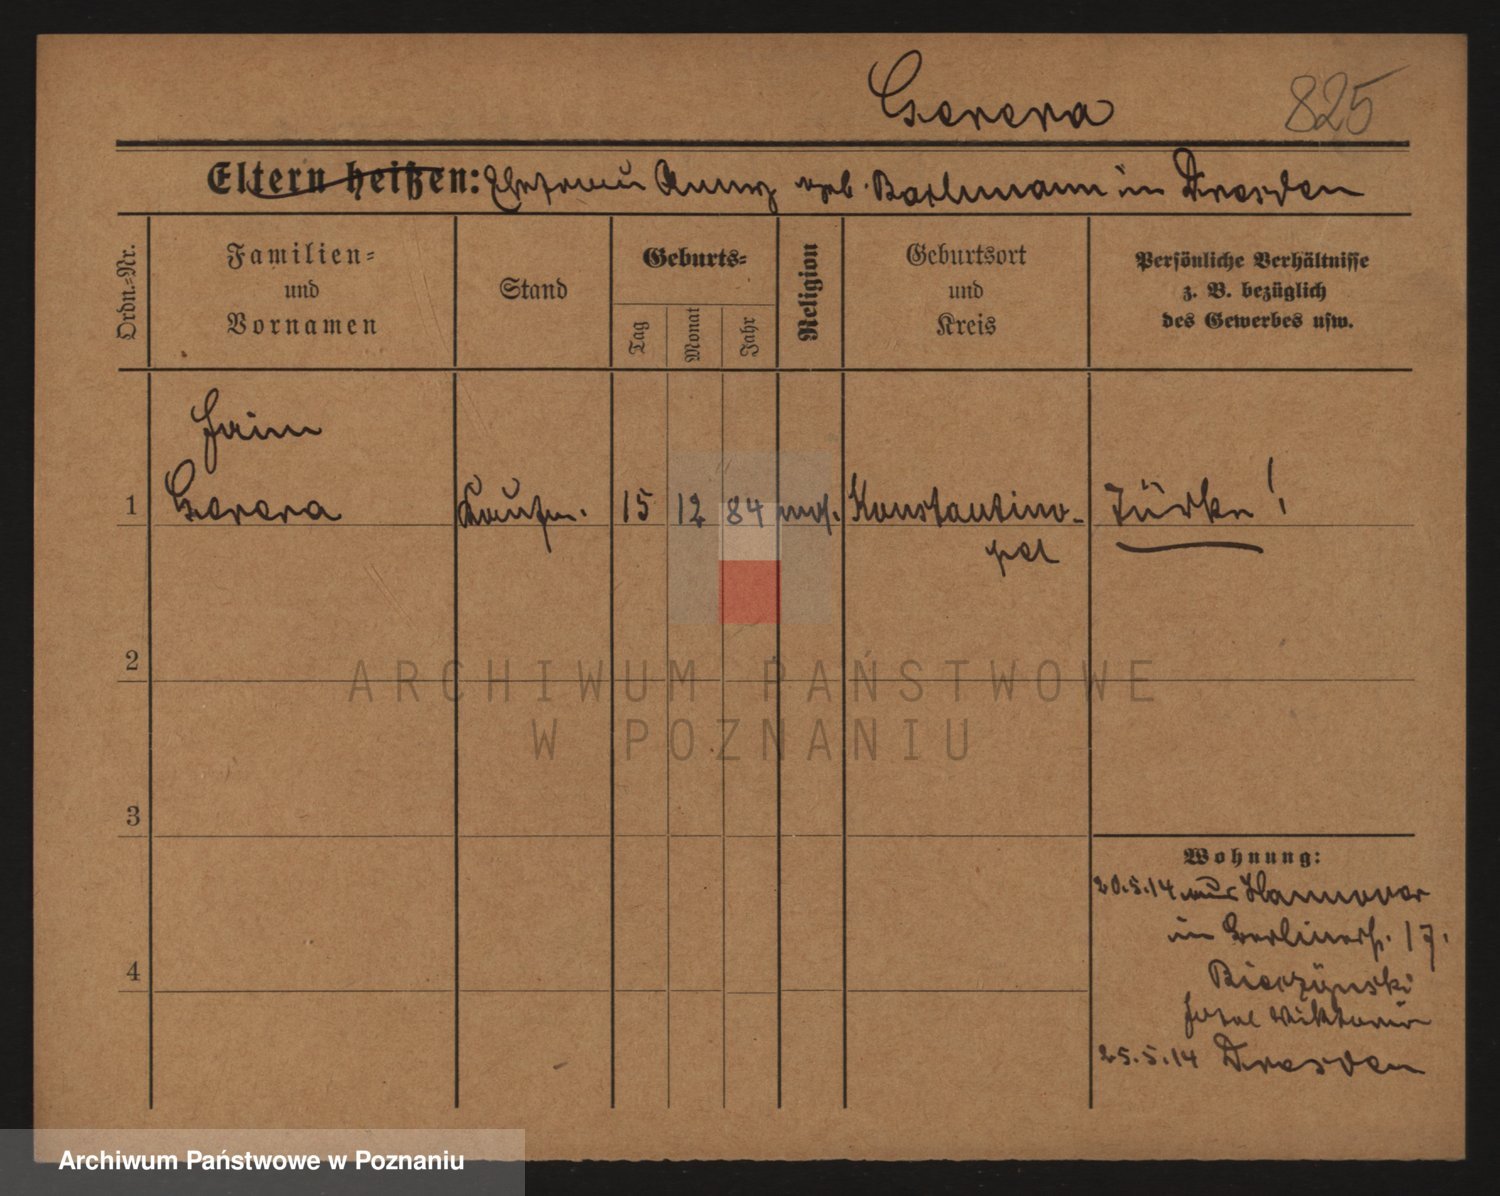 Gerera 825
Eltern heißen: Ehefrau Anny geb. Barlmann in Dresden
Ordn.-Nr.
Familien-
und
Vornamen
Stand
Geburts-
Tag
Monat
Jahr
Religion
Geburtsort
und
Kreis
Persönliche Verhältnisse
z. B. bezüglich
des Gewerbes usw.
Haim
1 Gerera Kaufm. 15 12 84 mos. Konstantino-
pel
Türke!
2
3
4
ARCHIWUM PAŃSTWOWE
W POZNANIU
Wohnung:
20.5.14 aus Hannover
in Berlinerst. 17.
Hotel Viktoria
25.5.14 Dresden
Archiwum Państwowe w Poznaniu